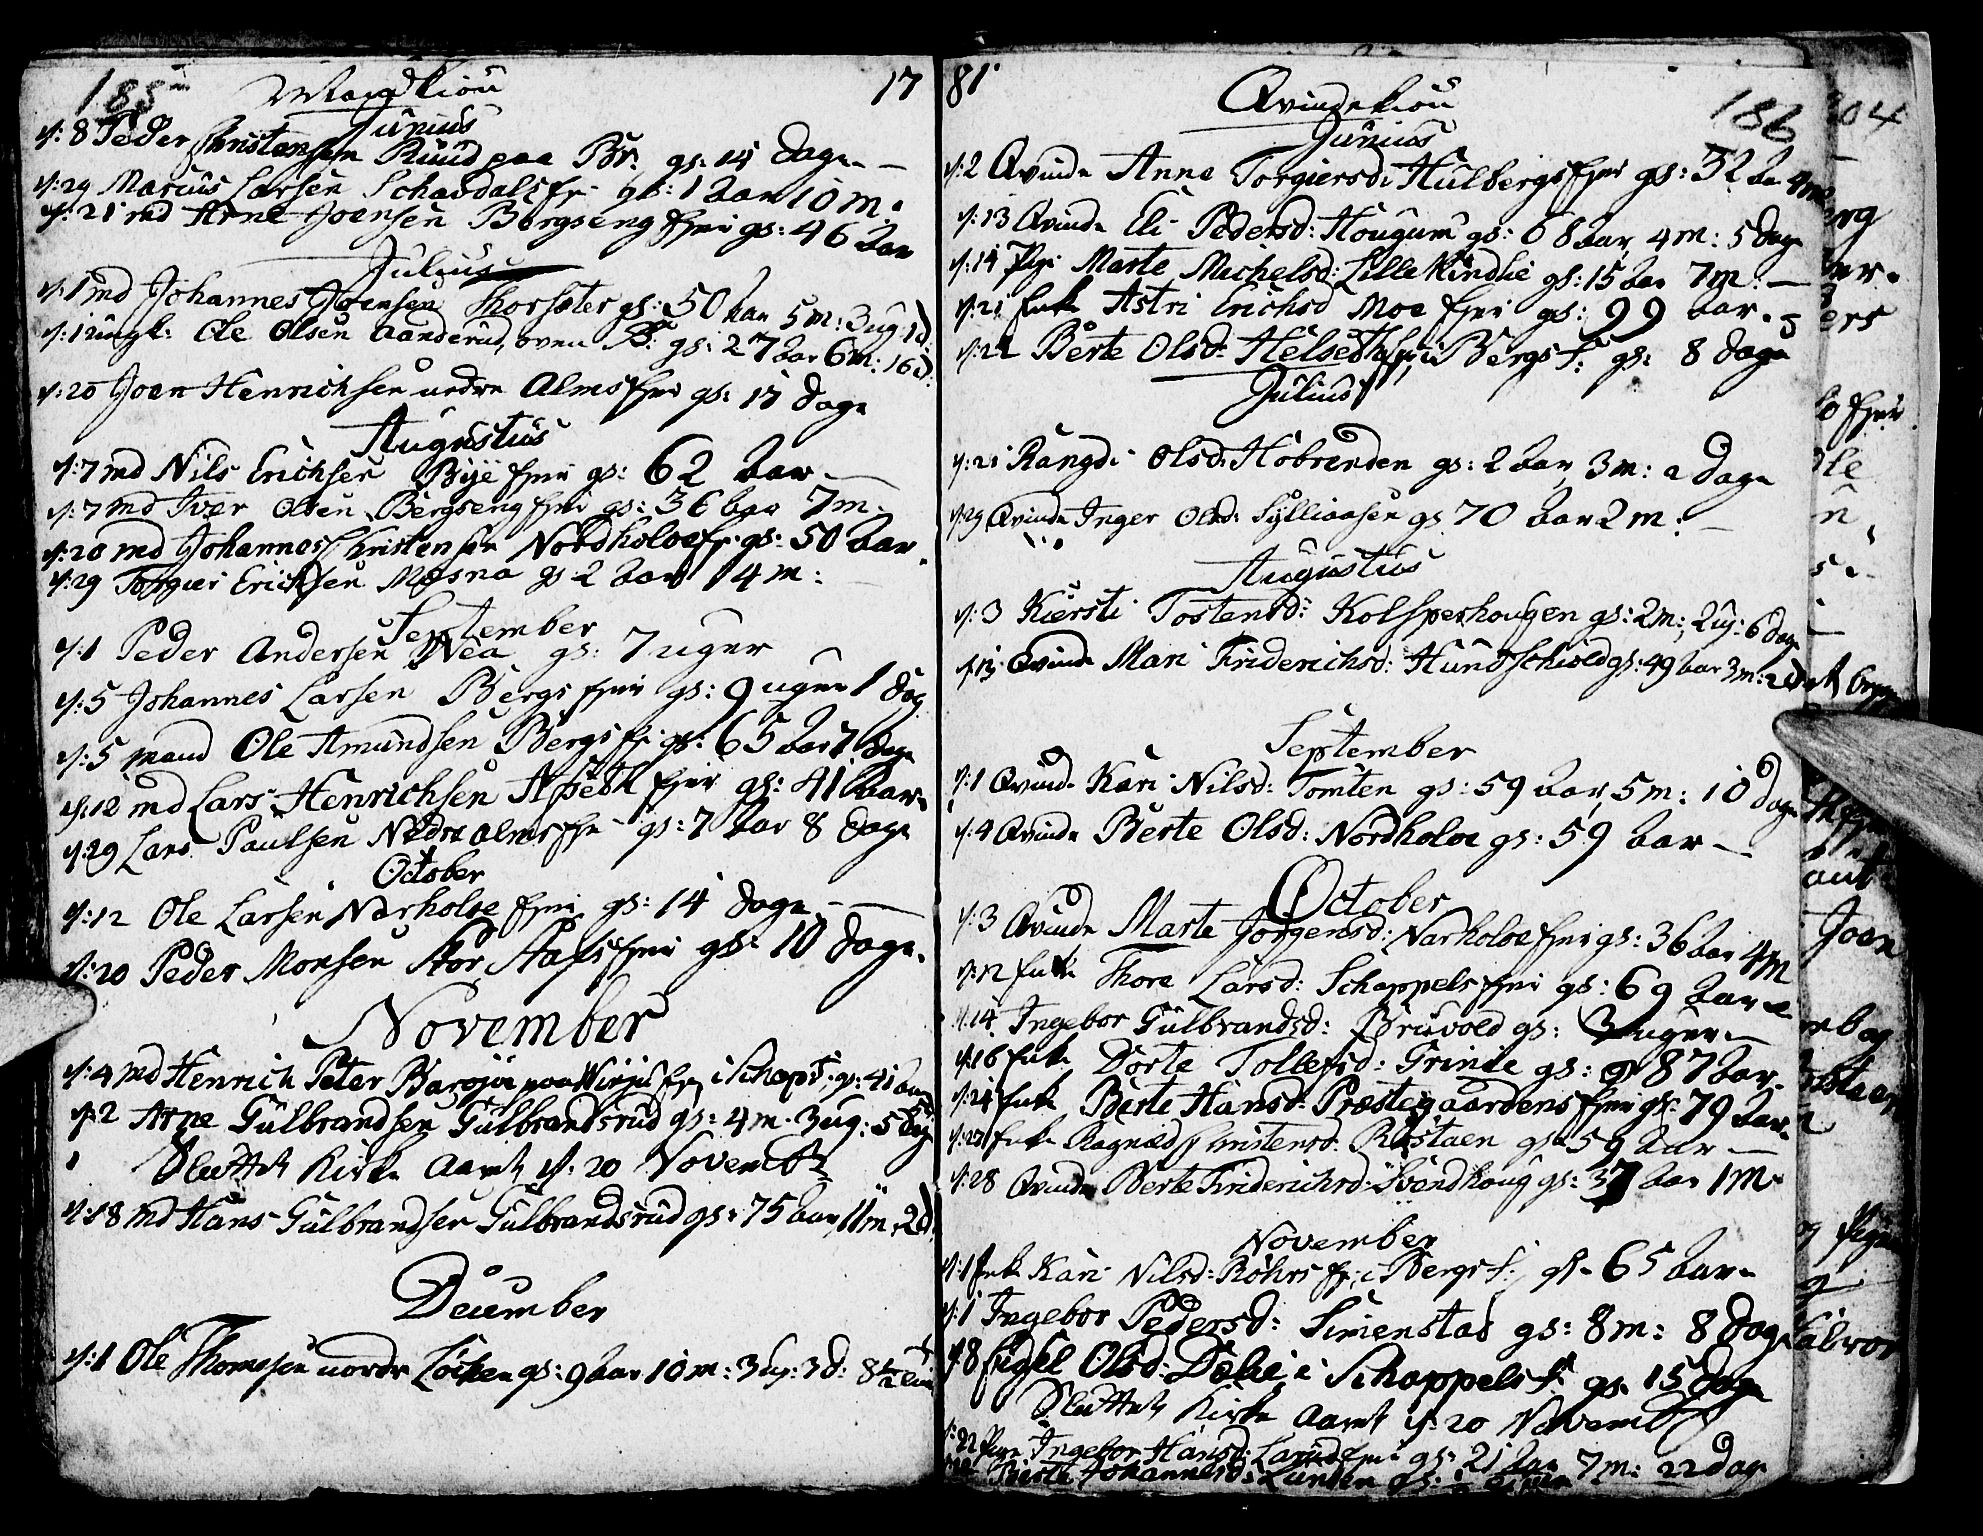 185
Mandkiön
17
Junius
d: 8 Peder Christensen Ruud paa Br: gs: 14 dage
d: 29 Marcus Larsen Schavdals gs: 1 aar 10 m:
d: 21 md Arne Joensen Bergseng eyer gs: 46 aar
Julius
d: 1 md Johannes Joensen Thorsæter gs: 50 aar 5 m: 3 ug: 1 d:
d: 1 ungk: Ole Olsen Aanderud, gs: 27 aar 6 m: 16 d:
d: 20 Joen Henrichsen nedre Alms eyer gs: 17 dage
Augustus
d: 7 md Nils Erichsen Bye eyer gs: 62 aar
d: 7 md Iver Olsen Bergseng eyer gs: 36 aar 7 m:
d: 20 md Johannes Christensen Nordholoe gs: 50 aar
d: 29 Torgier Erichsen Mæsna gs: 2 aar 4 m:
September
d: 1 Peder Andersen Wea gs: 7 uger
d: 5 Johannes Larsen Bergs eyer gs: 9 uger 1 dag
d: 5 mand Ole Amundsen Bergs gs: 65 aar 7 dage
d: 12 md Lars Henrichsen Alseth eyer gs: 41 aar
d: 29 Lars Paulsen Nedre Alms gs: 7 aar 8 dage
October
d: 12 Ole Larsen Narholoe eyer gs: 14 dage
d: 20 Peder Monsen Stor eyer gs: 10 dage
November
d: 4 md Henrich Peter i Schapf: gs: 41 aar
d: 2 Arne Gulbrandsen Gulbrandsrud gs: 4 m. 3 ug: 5 dage
Sluttet Kirke Aaret d: 20 Novembr
d: 18 md Hans Gulbrandsen Gulbrandsrud gs: 75 aar 11 m: 2 d:
December
d: 1 Ole Thomesen nordre Löcken gs: 9 aar 10 m: 3 ug: 3 d: 8½
81
Qvindekiön
186
Junius
d: 2 Qvinde Anne Torgiersd: Hulbergs eyer gs: 32 aar 4 m
d: 13 Qvinde Eli Pedersd: Hougum gs: 68 aar, 4 m: 5 dage
d: 14 Pige Marte Michelsd: Lille Kindlie gs: 15 aar 7 m:
d: 21 Enke Astri Erichsd Moe eyer gs: 99 aar
d: 22 Berte Olsd: Helseth i Bergs f: gs: 8 dage
Julius
d: 21 Rangdi Olsd: Hobrenden gs: 2 aar, 3 m: 2 dage
d: 29 Qvinde Inger Olsd: Sylliaasen gs 70 aar 2 m:
Augustus
d: 3 Kiersti Tostensd: Kolsperhougen gs: 2 m:, 2 ug: 6 dage
d: 13 Qvinde Mari Friderichsd: Hundschiold gs: 49 aar 3 m: 2
September
d: 1 Qvinde Kari Nilsd: Tomten gs: 59 aar, 5 m: 10 dage
d: 4 Qvinde Berte Olsd: Nordholoe gs: 59 aar
October
d: 3 Qvinde Marte Jörgensd: Narholoe eyer gs: 36 aar 4 m
d: 12 Enke Thore Larsd: Schappels eyer gs: 69 aar
d: 14 Ingebor Gulbrandsd: Bruvold gs: 3 uger
d: 16 Enke Dorte Tollefsd: Grinde gs: 87 aar
d: 24 Enke Berte Hansd: Præstegaardens eyer gs: 79 aar
d: 27 Enke Ragnild Christensd: Rostaen gs: 59 aar
d: 28 Qvinde Berte Friderichsd: Svendhoug gs: 37 aar 1 m.
November
d: 1 Enke Kari Nilsd: Röhrs i Bergs f: gs: 65 aar
d: 1 Ingebor Pedersd: Simenstad gs: 8 m: 8 dage
d: 8 Engel Olsd: Dælie i Schappels f: gs: 15 dage
Sluttet Kirke Aaret d: 20 Novembr
d: 22 Pige Ingebor Hansd: Larud gs: 21 aar 7 m: 22 dage
Berte Johannesd: Lunden gs:
204